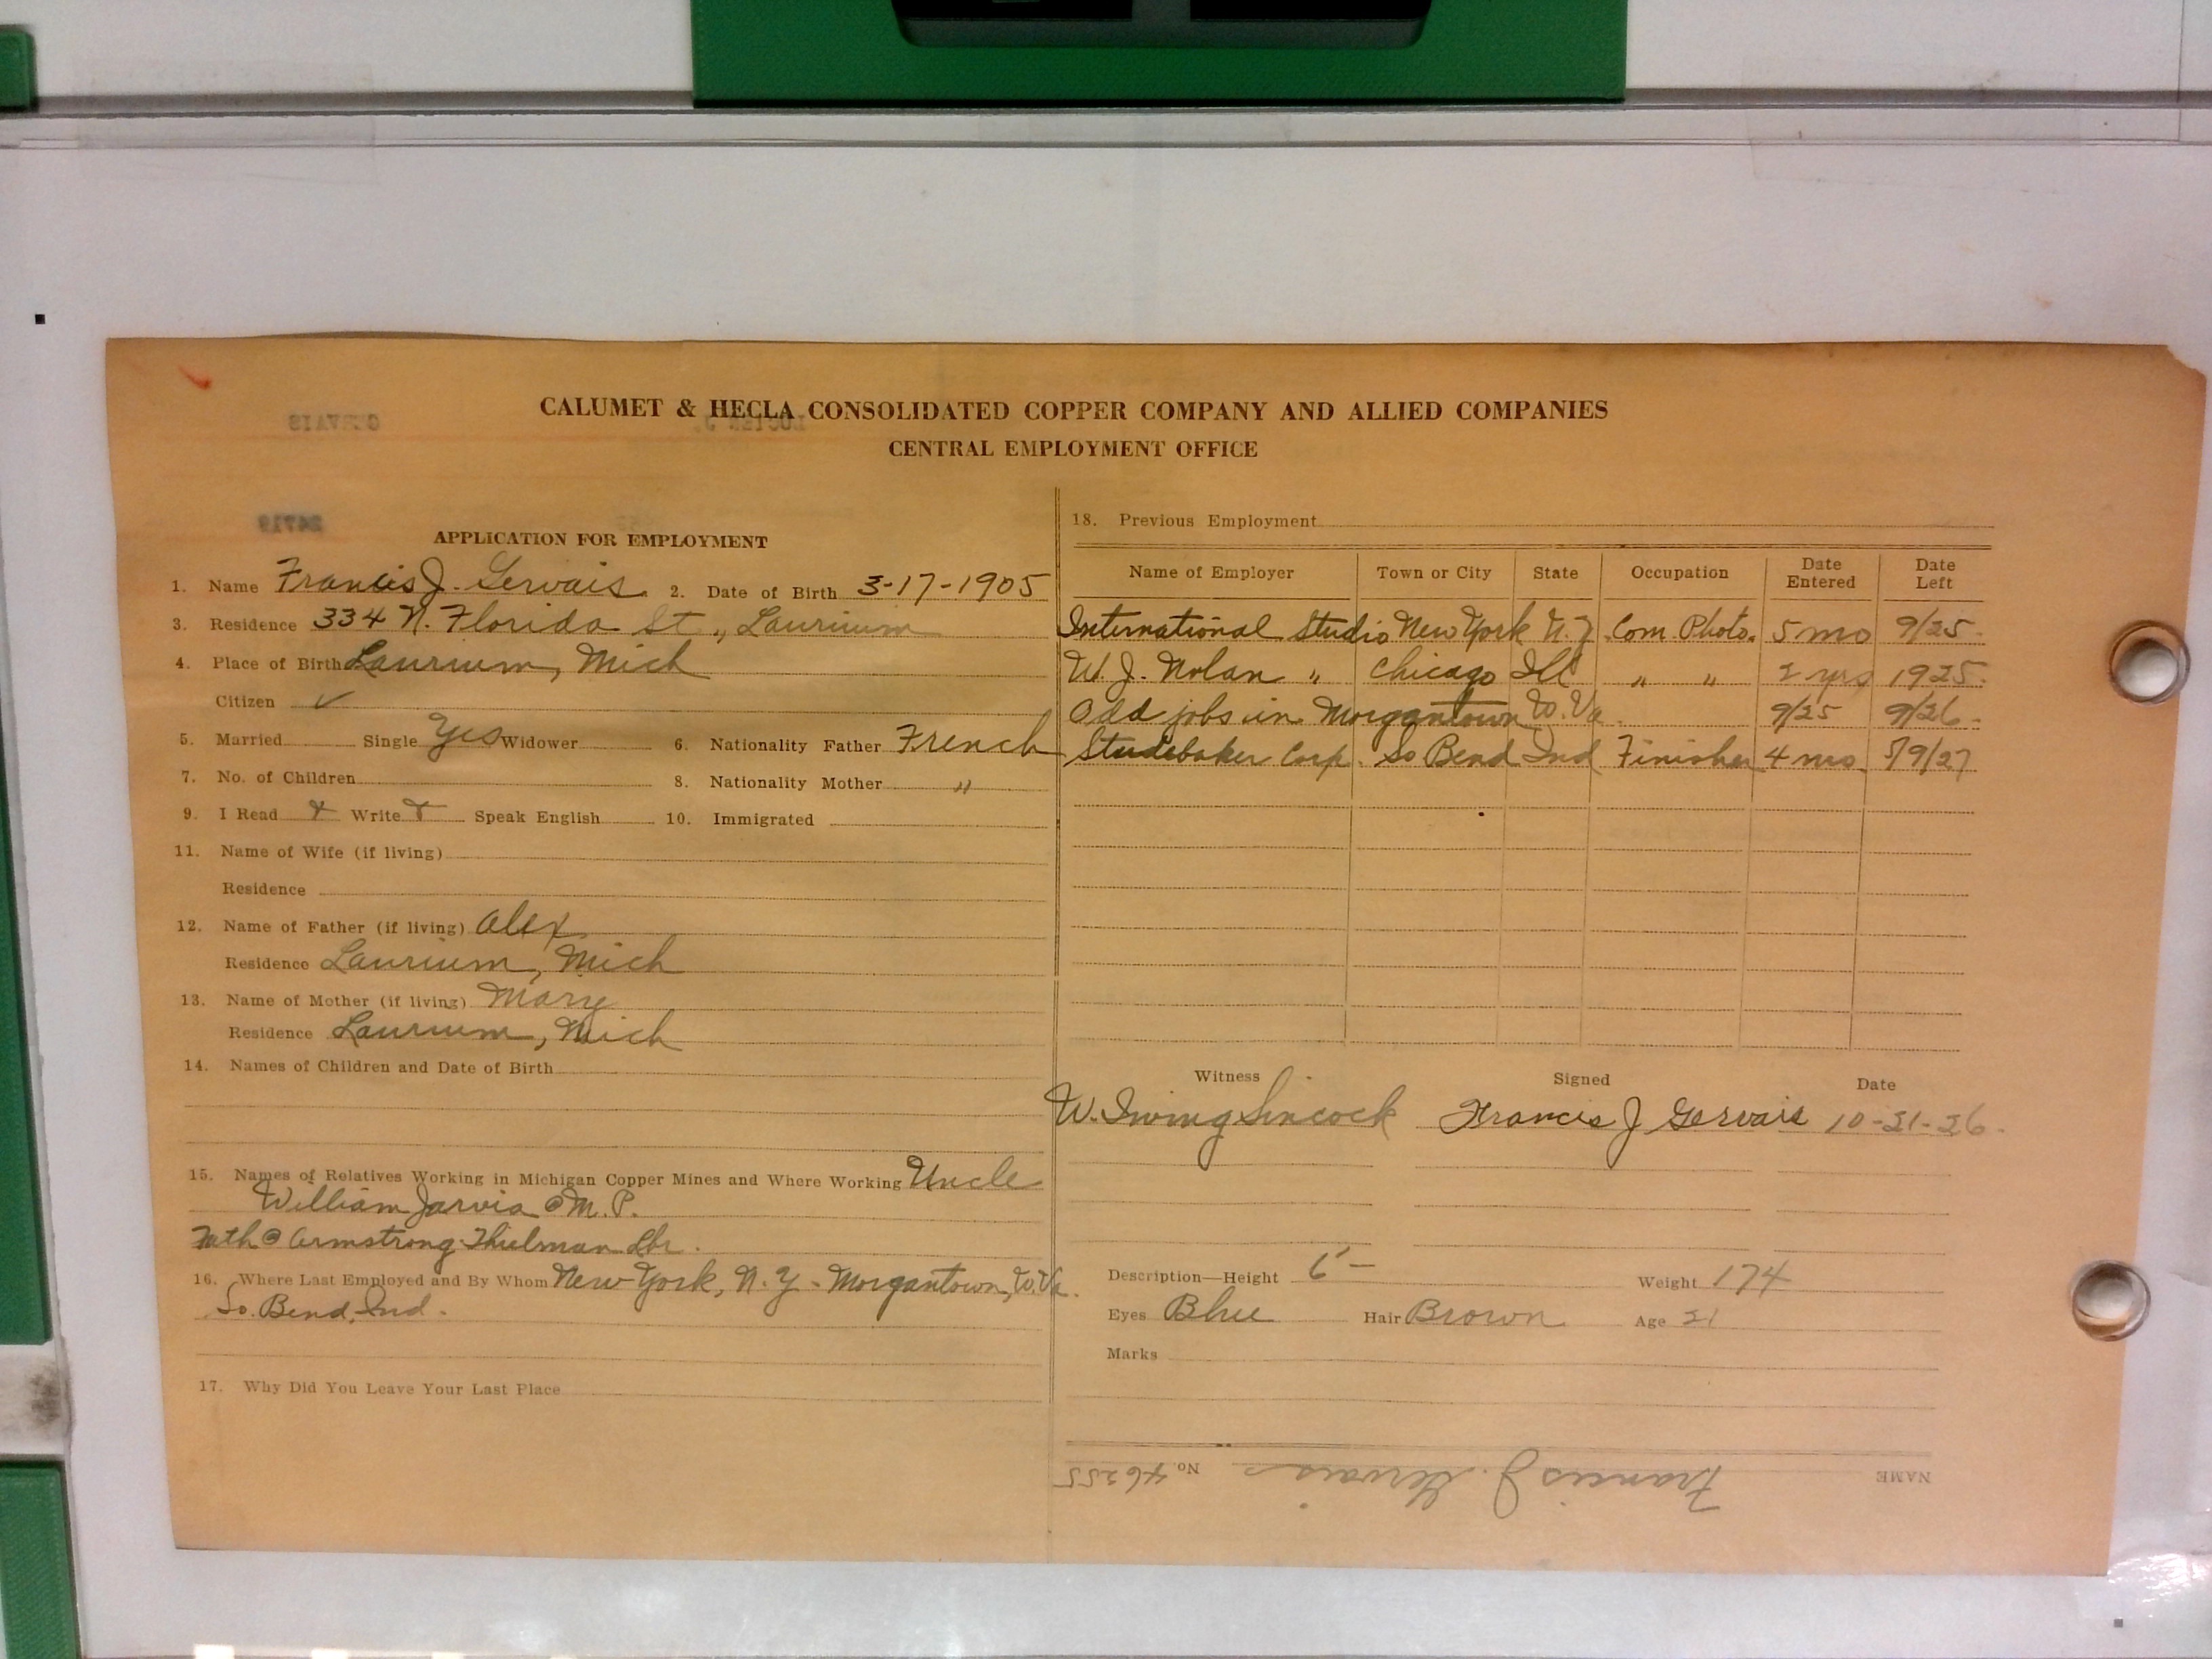 CALUMET & HECLA CONSOLIDATED COPPER COMPANY AND ALLIED COMPANIES
CENTRAL EMPLOYMENT OFFICE
GERVAIS
24719
APPLICATION FOR EMPLOYMENT
1. Name Francis J. Gervais. 2. Date of Birth 3-17-1905
3. Residence 334 N. Florida St., Laurium
4. Place of Birth Laurium, Mich
Citizen ✓
5. Married Single Yes Widower 6. Nationality Father French
7. No. of Children 8. Nationality Mother "
9. I Read + Write + Speak English 10. Immigrated
11. Name of Wife (if living)
Residence
12. Name of Father (if living) Alex
Residence Laurium, Mich
13. Name of Mother (if living) Mary
Residence Laurium, Mich
14. Names of Children and Date of Birth
15. Names of Relatives Working in Michigan Copper Mines and Where Working Uncle
William Jarvis @ M. P.
Fath @ Armstrong-Thielman Lbr.
16. Where Last Employed and By Whom New York, N.Y. - Morgantown, W.Va.
So. Bend, Ind.
17. Why Did You Leave Your Last Place
18. Previous Employment
Name of Employer Town or City State Occupation Date Entered Date Left
International Studio New York N.Y. Com. Photo. 5 mo 9/25.
W. J. Nolan " Chicago Ill " " 2 yrs 1925.
Odd jobs in Morgantown W. Va. 9/25 9/26.
Studebaker Corp. So Bend Ind Finisher 4 mo. 5/9/27
Witness Signed Date
W. Irving Sincock Francis J Gervais 10-21-26.
Description—Height 6'— Weight 174
Eyes Blue Hair Brown Age 21
Marks
NAME Francis J. Gervais No. 46255